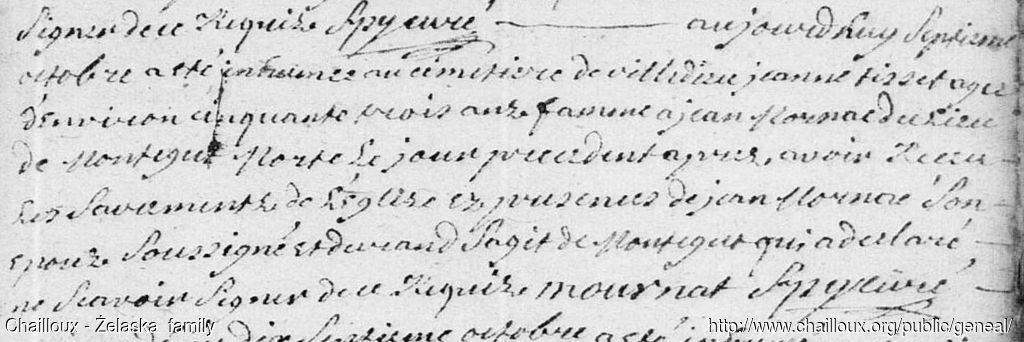 Signer de ce Requize Spy curé aujourdhuy Septieme
octobre a eté inhumee au cimetiere de villedieu jeanne tisset agee
d'environ cinquante trois anze famme a jean Mornac du Lieu
de Montegut Morte Le jour precedent apres, avoir Receu
Les Sacrements de L'Eglize ez presences de jean Mornac Son
epouze Soussigné et durand Sagit de Montegut qui a declaré
ne Scavoir Signer de ce Requize mournat Spy curé
dix Septieme octobre a eté
Chailloux - Želaska family
http://www.chailloux.org/public/geneal/